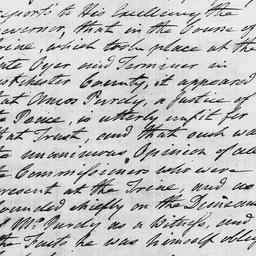 reports to His Excellency the
Governor, that in the Course of
Trial, which took place at the
late Oyer and Terminer in
Westchester County, it appeared
that Amos Purdy, a Justice of
the Peace, is utterly unfit for
that Trust, and that such was
the unanimous Opinion of all
the Commissioners who were
present at the Time, and as
founded chiefly on the
of Mr Purdy as a Witness, and
the Facts he was himself oblig